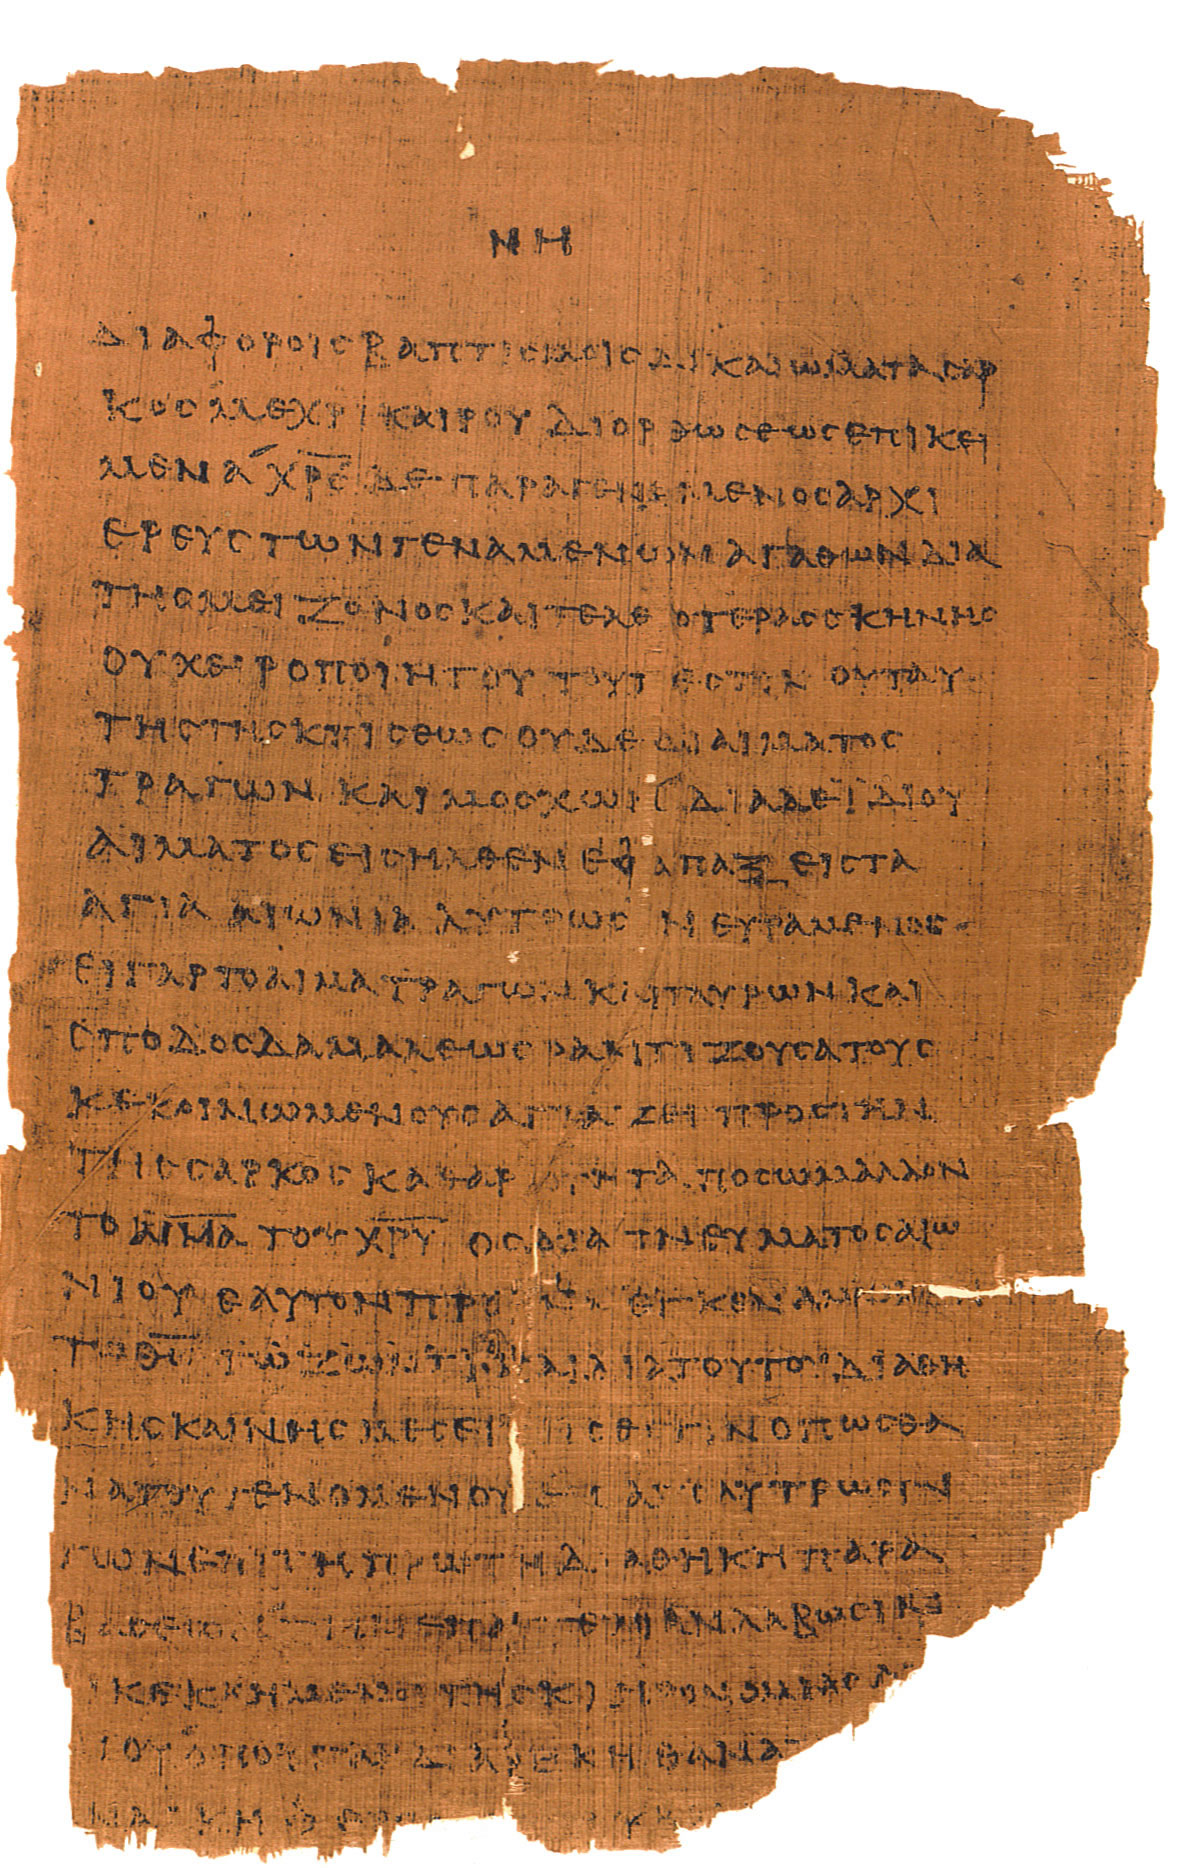 ΝΗ
ΔΙΑΦΟΡΟΙΣ ΒΑΠΤΙΣΜΟΙΣ ΔΙΚΑΙΩΜΑΤΑ ΣΑΡ
ΚΟΣ ΜΕΧΡΙ ΚΑΙΡΟΥ ΔΙΟΡΘΩΣΕΩΣ ΕΠΙΚΕΙ
ΜΕΝΑ ΧΡΣ ΔΕ ΠΑΡΑΓΕΝΑΜΕΝΟΣ ΑΡΧΙ
ΕΡΕΥΣ ΤΩΝ ΓΕΝΑΜΕΝΩΝ ΑΓΑΘΩΝ ΔΙΑ
ΤΗΣ ΜΕΙΖΟΝΟΣ ΚΑΙ ΤΕΛΕΟΤΕΡΑΣ ΣΚΗΝΗΣ
ΟΥ ΧΕΙΡΟΠΟΙΗΤΟΥ ΤΟΥΤ ΕΣΤΙΝ ΟΥ ΤΑΥ
ΤΗΣ ΤΗΣ ΚΤΙΣΕΩΣ ΟΥΔΕ ΔΙ ΑΙΜΑΤΟΣ
ΤΡΑΓΩΝ ΚΑΙ ΜΟΣΧΩΝ ΔΙΑ ΔΕ ΪΔΙΟΥ
ΑΙΜΑΤΟΣ ΕΙΣΗΛΘΕΝ ΕΦΑΠΑΞ ΕΙΣ ΤΑ
ΑΓΙΑ ΑΙΩΝΙΑ ΛΥΤΡΩΣΙΝ ΕΥΡΑΜΕΝΟΣ
ΕΙ ΓΑΡ ΤΟ ΑΙΜΑ ΤΡΑΓΩΝ ΚΑΙ ΤΑΥΡΩΝ ΚΑΙ
ΣΠΟΔΟΣ ΔΑΜΑΛΕΩΣ ΡΑΝΤΙΖΟΥΣΑ ΤΟΥΣ
ΚΕΚΟΙΝΩΜΕΝΟΥΣ ΑΓΙΑΖΕΙ ΠΡΟΣ ΤΗΝ
ΤΗΣ ΣΑΡΚΟΣ ΚΑΘΑΡΟΤΗΤΑ ΠΟΣΩ ΜΑΛΛΟΝ
ΤΟ ΑΙΜΑ ΤΟΥ ΧΡΥ ΟΣ ΔΙΑ ΠΝΕΥΜΑΤΟΣ ΑΙΩ
ΝΙΟΥ ΕΑΥΤΟΝ ΠΡΟΣΗΝΕΓΚΕΝ
ΤΩ ΘΩ ΤΩ ΖΩΝΤΙ ΚΑΙ ΔΙΑ ΤΟΥΤΟ ΔΙΑΘΗ
ΚΗΣ ΚΑΙΝΗΣ ΜΕΣΕΙΤΗΣ ΕΣΤΙΝ ΟΠΩΣ ΘΑ
ΝΑΤΟΥ ΓΕΝΟΜΕΝΟΥ ΕΙΣ ΑΠΟΛΥΤΡΩΣΙΝ
ΤΩΝ ΕΠΙ ΤΗ ΠΡΩΤΗ ΔΙΑΘΗΚΗ ΠΑΡΑ
ΒΑΣΕΩΝ ΤΗΝ ΕΠΑΓΓΕΛΙΑΝ ΛΑΒΩΣΙΝ
ΚΕΚΛΗΜΕΝΟΙ ΤΗΣ ΚΛΗΡΟΝΟΜΙΑΣ
ΟΠΟΥ ΓΑΡ ΔΙΑΘΗΚΗ ΘΑΝΑ